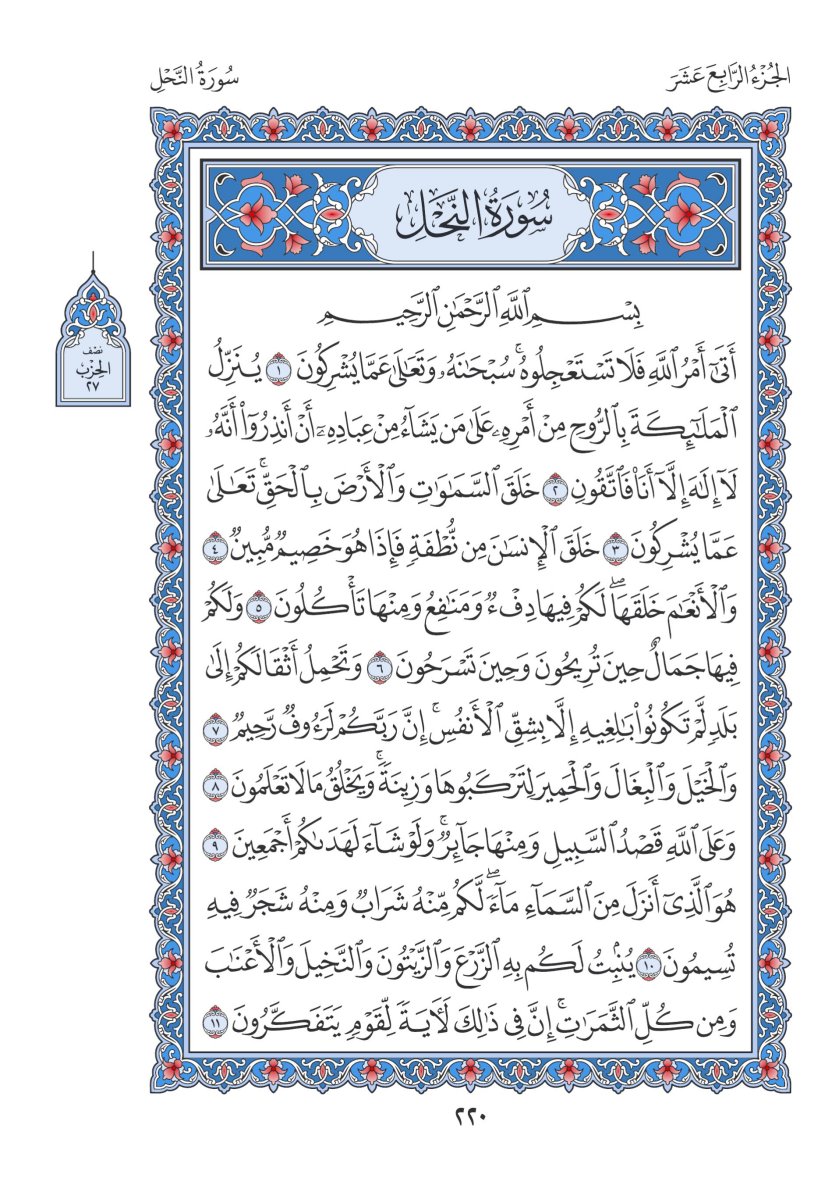 الجُزْءُ الرَّابِعَ عَشَرَ
سُورَةُ النَّحْلِ
سُورَةُ النَّحْلِ
نصْف
الحِزْب
٢٧
بِسْمِ ٱللَّهِ ٱلرَّحْمَٰنِ ٱلرَّحِيمِ
أَتَىٰٓ أَمْرُ ٱللَّهِ فَلَا تَسْتَعْجِلُوهُۚ سُبْحَٰنَهُۥ وَتَعَٰلَىٰ عَمَّا يُشْرِكُونَ ١ يُنَزِّلُ
ٱلْمَلَٰٓئِكَةَ بِٱلرُّوحِ مِنْ أَمْرِهِۦ عَلَىٰ مَن يَشَآءُ مِنْ عِبَادِهِۦٓ أَنْ أَنذِرُوٓا۟ أَنَّهُۥ
لَآ إِلَٰهَ إِلَّآ أَنَا۠ فَٱتَّقُونِ ٢ خَلَقَ ٱلسَّمَٰوَٰتِ وَٱلْأَرْضَ بِٱلْحَقِّۚ تَعَٰلَىٰ
عَمَّا يُشْرِكُونَ ٣ خَلَقَ ٱلْإِنسَٰنَ مِن نُّطْفَةٍ فَإِذَا هُوَ خَصِيمٌ مُّبِينٌ ٤
وَٱلْأَنْعَٰمَ خَلَقَهَاۖ لَكُمْ فِيهَا دِفْءٌ وَمَنَٰفِعُ وَمِنْهَا تَأْكُلُونَ ٥ وَلَكُمْ
فِيهَا جَمَالٌ حِينَ تُرِيحُونَ وَحِينَ تَسْرَحُونَ ٦ وَتَحْمِلُ أَثْقَالَكُمْ إِلَىٰ
بَلَدٍ لَّمْ تَكُونُوا۟ بَٰلِغِيهِ إِلَّا بِشِقِّ ٱلْأَنفُسِۚ إِنَّ رَبَّكُمْ لَرَءُوفٌ رَّحِيمٌ ٧
وَٱلْخَيْلَ وَٱلْبِغَالَ وَٱلْحَمِيرَ لِتَرْكَبُوهَا وَزِينَةًۚ وَيَخْلُقُ مَا لَا تَعْلَمُونَ ٨
وَعَلَى ٱللَّهِ قَصْدُ ٱلسَّبِيلِ وَمِنْهَا جَآئِرٌۚ وَلَوْ شَآءَ لَهَدَىٰكُمْ أَجْمَعِينَ ٩
هُوَ ٱلَّذِىٓ أَنزَلَ مِنَ ٱلسَّمَآءِ مَآءًۖ لَّكُم مِّنْهُ شَرَابٌ وَمِنْهُ شَجَرٌ فِيهِ
تُسِيمُونَ ١٠ يُنۢبِتُ لَكُم بِهِ ٱلزَّرْعَ وَٱلزَّيْتُونَ وَٱلنَّخِيلَ وَٱلْأَعْنَٰبَ
وَمِن كُلِّ ٱلثَّمَرَٰتِۚ إِنَّ فِى ذَٰلِكَ لَءَايَةً لِّقَوْمٍ يَتَفَكَّرُونَ ١١
٢٢٠